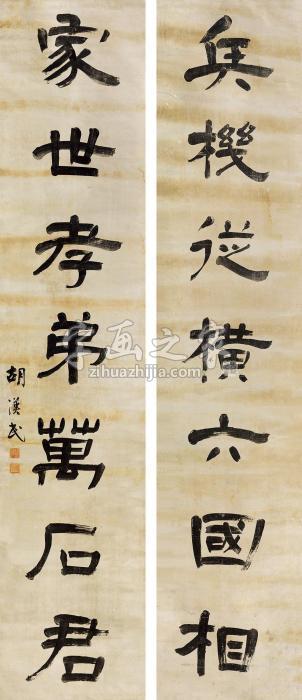 兵機從橫六國相
家世孝弟萬石君
胡漢民
字画之家
zihuazhijia.com